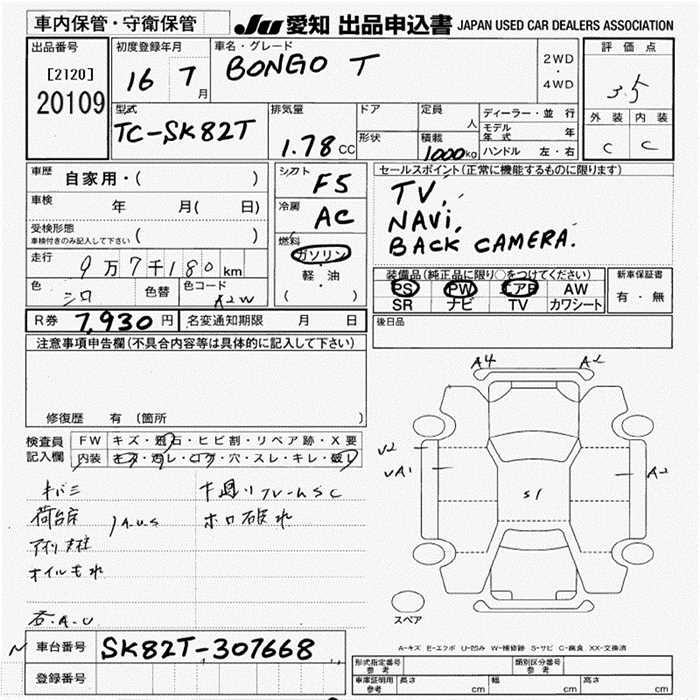 車内保管・守衛保管
JU 愛知 出品申込書 JAPAN USED CAR DEALERS ASSOCIATION
出品番号
[2120]
20109
初度登録年月
16 7月
車名・グレード
BONGO T
2WD
・
4WD
評価点
3.5
外装 内装
C C
型式
TC-SK82T
排気量
1.78 CC
ドア
形状
定員
人
積載
1000kg
ディーラー・並行
モデル年式 年
ハンドル 左・右
車歴 自家用・( )
車検 年 月( 日)
受検形態
車検付きのみ記入して下さい ( )
走行 9万7千180km
色 シロ 色替 色コード A2W
シフト F5
冷房 AC
燃料
ガソリン
軽・油
( )
セールスポイント(正常に機能するものに限ります)
TV,
NAVi,
BACK CAMERA.
装備品(純正品に限り○をつけてください)
PS PW エアB AW
SR ナビ TV カワシート
新車保証書
有・無
後日品
R券 7,930円 名変通知期限 月 日
注意事項申告欄(不具合内容等は具体的に記入して下さい)
修復歴 有 (箇所 )
検査員
記入欄
FW キズ・飛石・ヒビ割・リペア跡・X要
内装 キズ・汚レ・コゲ・穴・スレ・キレ・破レ
キバミ
荷台
A.U.S
オイルもれ
下廻りフレームSC
ホロ破れ
A4
A2
U2
UA1
S1
A2
スペア
A-キズ E-エクボ U-凹み W-補修跡 S-サビ C-腐食 XX-交換済
車台番号 SK82T-307668
登録番号
形式指定番号
参考
類別区分番号
参考
車庫証明用
参考
長さ cm 幅 cm 高さ cm